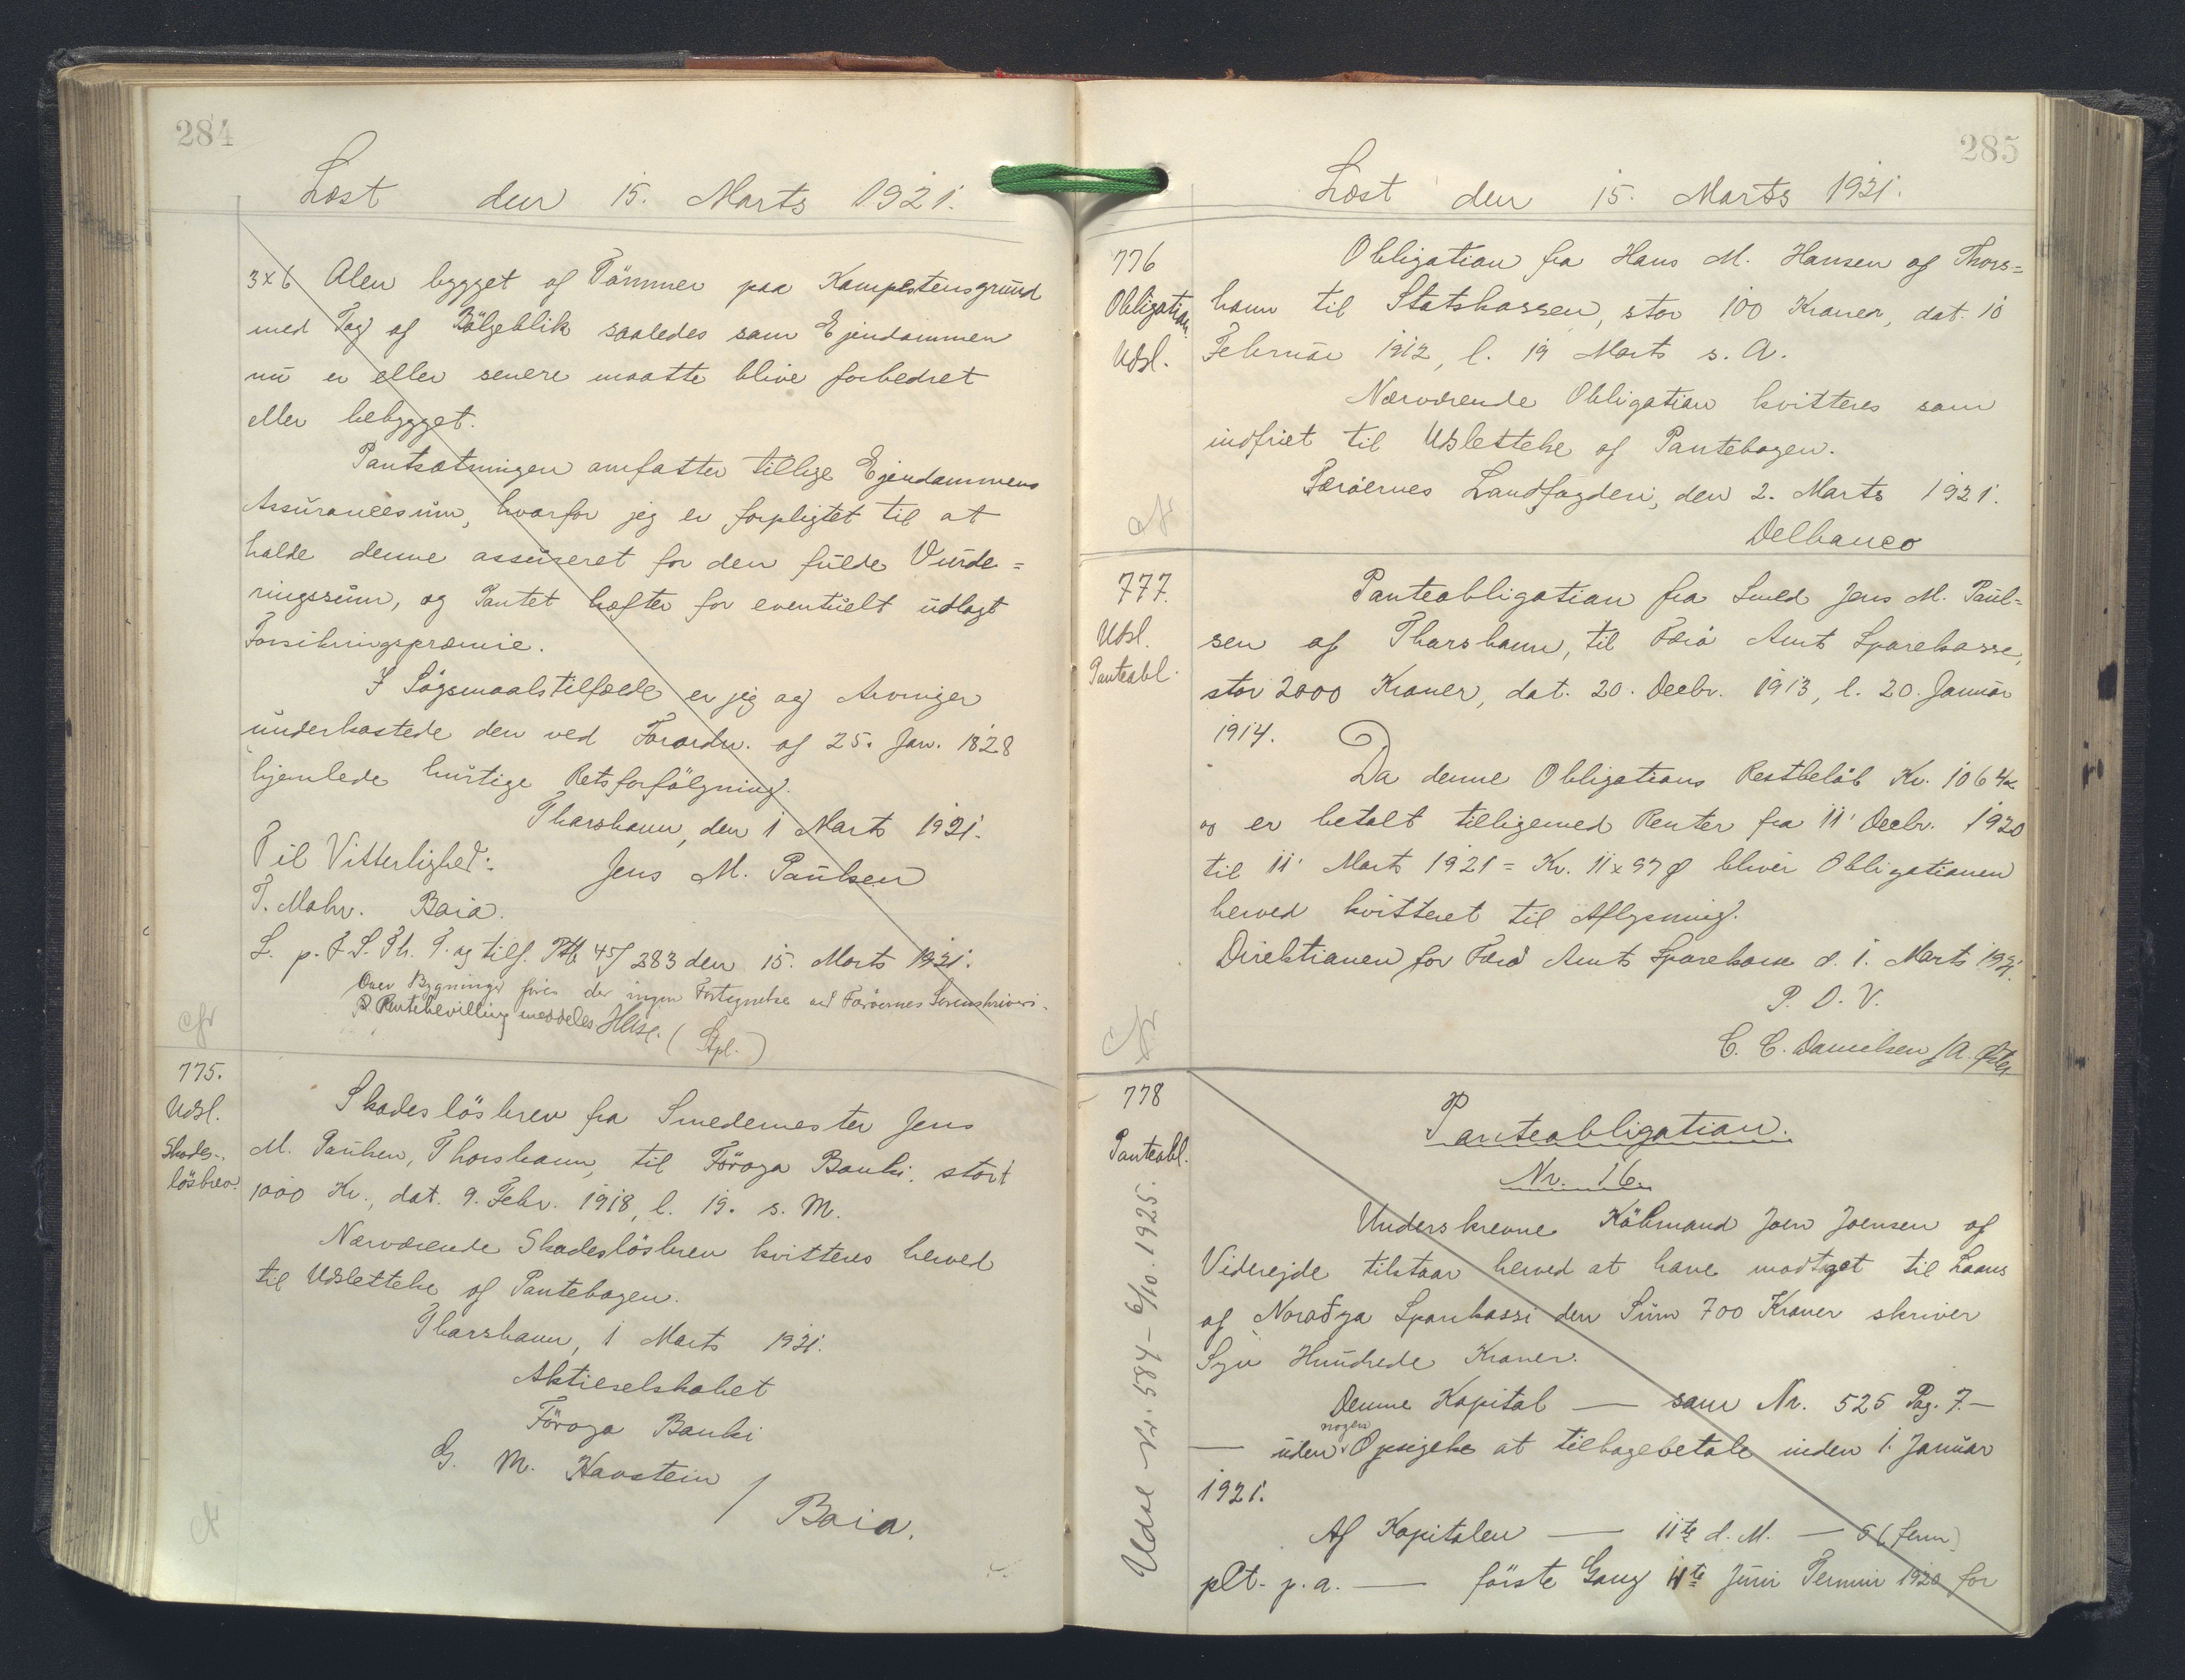 284
Læst den 15. Marts 1921.
3x6 Alen bygget af Tömmer paa Kampestensgrund
med Tag af Bölgeblik saaledes som Ejendommen
nu er eller senere maatte blive forbedret
eller bebygget.
Pantsætningen omfatter tillige Ejendommens
Assurancesum, hvorfor jeg er forpligtet til at
holde denne assureret for den fulde Vurde=
ringssum, og Pantet hæfter for eventuelt udlagt
Forsikringspræmie.
I Sögsmaalstilfælde er jeg og Arvinger
underkastede den ved Forordn. af 25. Jan. 1828
hjemlede hurtige Retsforfölgning.
Thorshavn, den 1 Marts 1921.
Til Vitterlighed: Jens M. Paulsen
T. Mohr. Baia.
L. p. F. S. Th. T. og tilf. Ptb. 45/283 den 15. Marts 1921.
Over Bygninger föres der ingen Fortegnelse ved Færöernes Sorenskriveri.
Pantebevilling meddeles (Stpl.)
775.
Udsl.
Skades-
lösbrev.
Skadeslösbrev fra Smedemester Jens
M. Paulsen, Thorshavn, til Föroya Banki, stort
1000 Kr., dat. 9. Febr. 1918, l. 19. s. M.
Nærværende Skadeslösbrev kvitteres herved
til Udslettelse af Pantebogen.
Thorshavn, 1 Marts 1921.
Aktieselskabet
Föroya Banki
G. M. Havstein / Baia.
285
Læst den 15. Marts 1921.
776
Obligation
Udsl.
Obligation fra Hans M. Hansen af Thors=
havn til Statskassen, stor 100 Kroner, dat. 10
Februar 1912, l. 19 Marts s. A.
Nærværende Obligation kvitteres som
indfriet til Udslettelse af Pantebogen.
Færöernes Landfogderi, den 2. Marts 1921.
Delbanco
777.
Udsl.
Panteobl.
Panteobligation fra Smed Jens M. Paul=
sen af Thorshavn, til Færö Amts Sparekasse,
stor 2000 Kroner, dat. 20. Decbr. 1913, l. 20. Januar
1914.
Da denne Obligations Restbelöb Kr. 1064
er betalt tilligemed Renter fra 11' Decbr. 1920
til 11' Marts 1921 = Kr. 11x97 Ø bliver Obligationen
herved kvitteret til Aflysning.
Direktionen for Færö Amts Sparekasse d. 1. Marts 1921.
P. D. V.
C. C. Danielsen /A.
778
Panteobl.
Udsl Nr. 584 - 6/10. 1925.
Panteobligation.
Nr. 16.
Underskrevne Köbmand Joen Joensen af
Viderejde tilstaar herved at have modtaget til Laans
af Norðoya Sparikassi den Sum 700 Kroner skriver
Syv Hundrede Kroner.
Denne Kapital — som Nr. 525 Pag. 7. —
— uden nogen Opsigelse at tilbagebetale inden 1. Januar
1921.
Af Kapitalen — 11te d. M. — 5 (fem)
pCt. p. a. — förste Gang 11te Juni Termin 1920 for